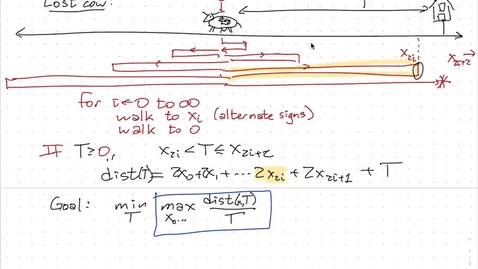 Lost cow:
x₂ᵢ
x₂ᵢ₊₂
for i←0 to ∞
walk to xᵢ (alternate signs)
walk to 0
If T≥0, x₂ᵢ < T ≤ x₂ᵢ₊₂
dist(T) = 2x₀+2x₁+ ··· 2x₂ᵢ + 2x₂ᵢ₊₁ + T
Goal: min T max x₀... dist(x,T) / T